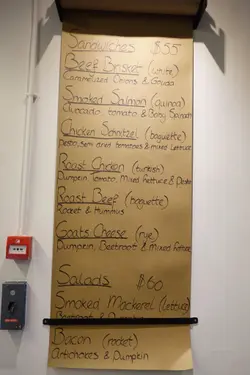 Sandwiches $55
Beef Brisket (white)
Caramelized Onions & Gruda
Smoked Salmon (quinoa)
Avocado, tomato & Baby Spinach
Chicken Schnitzel (baguette)
Pesto, semi dried tomatoes & mixed lettuce
Roast Chicken (turkish)
Pumpkin, Tomato, Mixed lettuce & Pesto
Roast Beef (baguette)
Rocket & Hummus
Goats Cheese (rye)
Pumpkin, Beetroot & Mixed lettuce
Salads $60
Smoked Mackerel (lettuce)
Beetroot & Pumpkin
Bacon (rocket)
Artichokes & Pumpkin